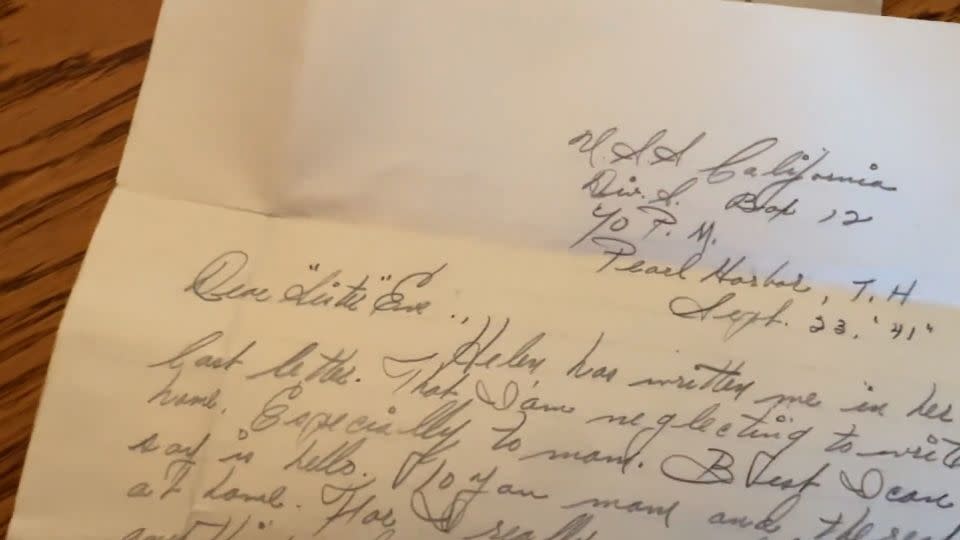 U.S.S California
Div. S. Box 12
c/o P. M.
Pearl Harbor, T. H
Sept. 23, "41"
Dear "Sister" Eve.,
Helen has written me in her
last letter. That I am neglecting to write
home. Especially to mom. Best I can
say is hello. To you mom and the rest
at home. For I really